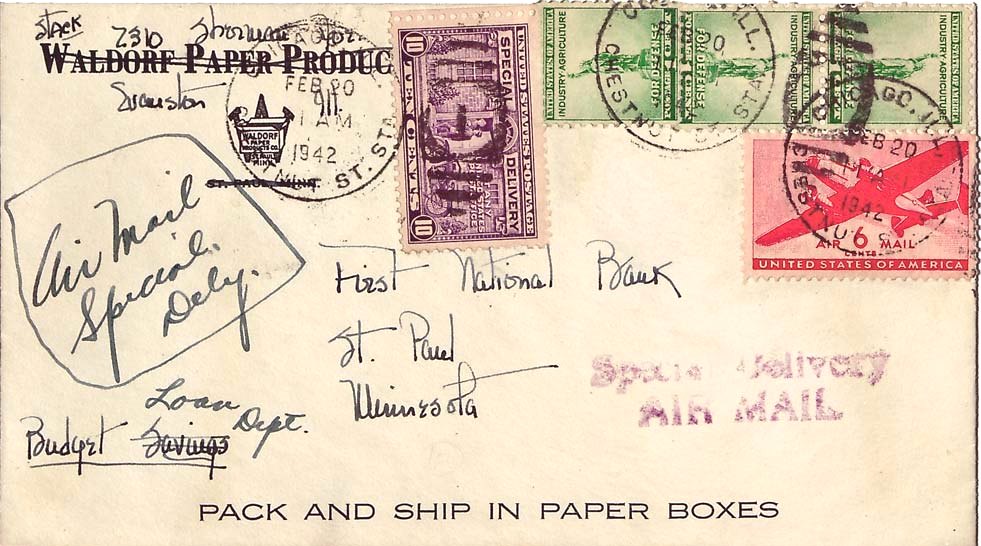 Stack
2310 Sherman
WALDORF PAPER PRODUC
Evanston
FEB 20
1 AM
1942
ILL.
CHESTNUT ST. STA.
WALDORF
PAPER
PRODUCTS CO.
ST. PAUL
MINN.
ST. PAUL, MINN.
SPECIAL DELIVERY
UNITED STATES POSTAGE
10 TEN CENTS 10
UNITED STATES OF AMERICA
INDUSTRY AGRICULTURE
FOR DEFENSE
CHICAGO, ILL.
FEB 20
1942
AIR 6 MAIL
CENTS
UNITED STATES OF AMERICA
Air Mail
Special
Dely.
First National Bank
St. Paul
Minnesota
Special Delivery
AIR MAIL
Loan
Budget Savings Dept.
PACK AND SHIP IN PAPER BOXES